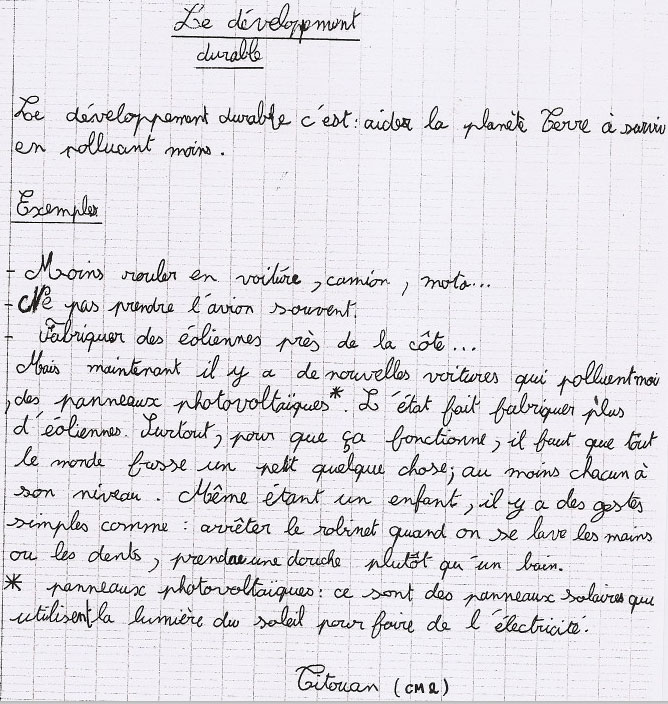 Le développement
durable
Le développement durable c'est : aider la planète Terre à surviv
en polluant moins.
Exemples
- Moins rouler en voiture, camion, moto...
- Ne pas prendre l'avion souvent.
- Fabriquer des éoliennes près de la côte...
Mais maintenant il y a de nouvelles voitures qui polluent moi
, des panneaux photovoltaïques*. L'état fait fabriquer plus
d'éoliennes. Surtout, pour que ça fonctionne, il faut que tout
le monde fasse un petit quelque chose; au moins chacun à
son niveau. Même étant un enfant, il y a des gestes
simples comme : arrêter le robinet quand on se lave les mains
ou les dents, prendre une douche plutôt qu'un bain.
* panneaux photovoltaïques : ce sont des panneaux solaires qui
utilisent la lumière du soleil pour faire de l'électricité.
Titouan (CM2)